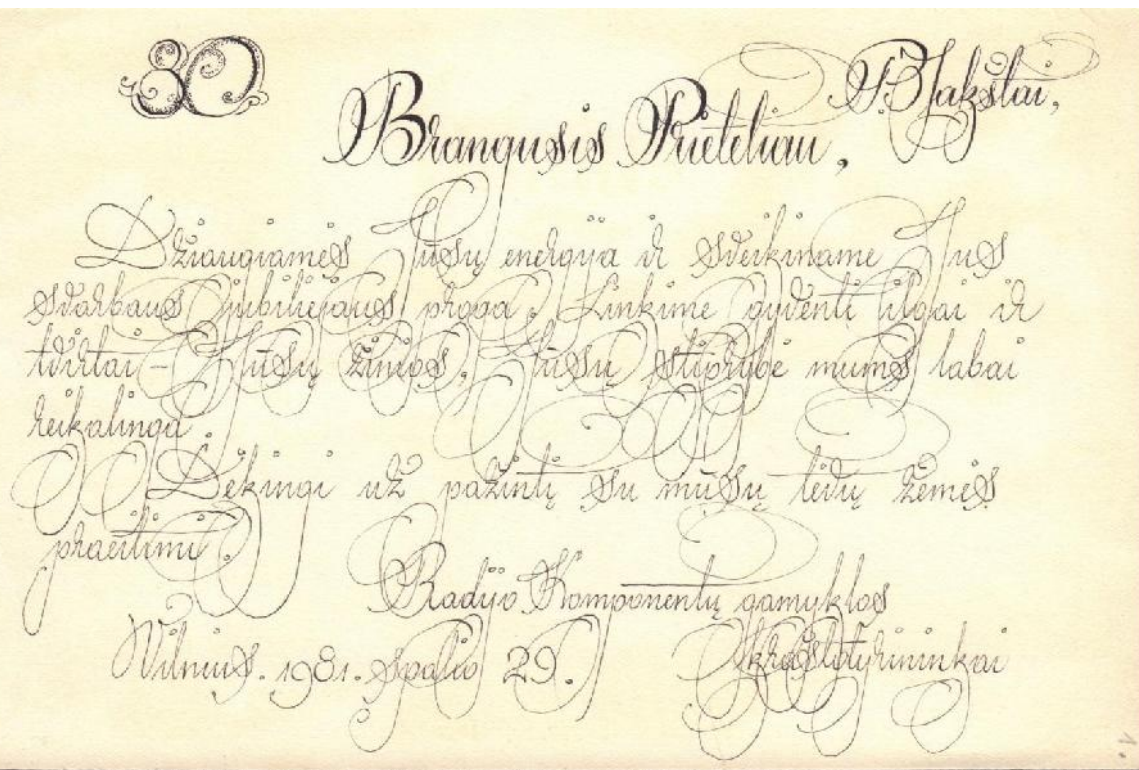 80
Jakštai,
Brangusis Prieteliau,
Džiaugiamės Jūsų energija ir sveikiname Jus
svarbaus jubiliejaus proga. Linkime gyventi ilgai ir
tvirtai – Jūsų žinios, Jūsų stiprybė mums labai
reikalinga.
Dėkingi už pažintį su mūsų tėvų žemės
praeitimi.
Radijo Komponentų gamyklos
Vilnius. 1981. Spalio 29. kraštotyrininkai